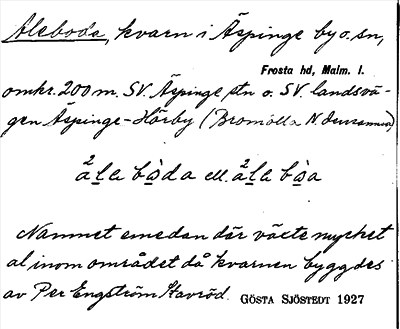 Aleboda, kvarn i Äspinge by o. sn,
Frosta hd, Malm. l.
omkr. 200 m. SV. Äspinge stn o. SV. landsvä-
gen Äspinge-Hörby (Bromölla N.
ala boda ell. ala boa
Namnet emedan där växte mycket
al inom området då kvarnen byggdes
av Per Engström Stavröd. GÖSTA SJÖSTEDT 1927